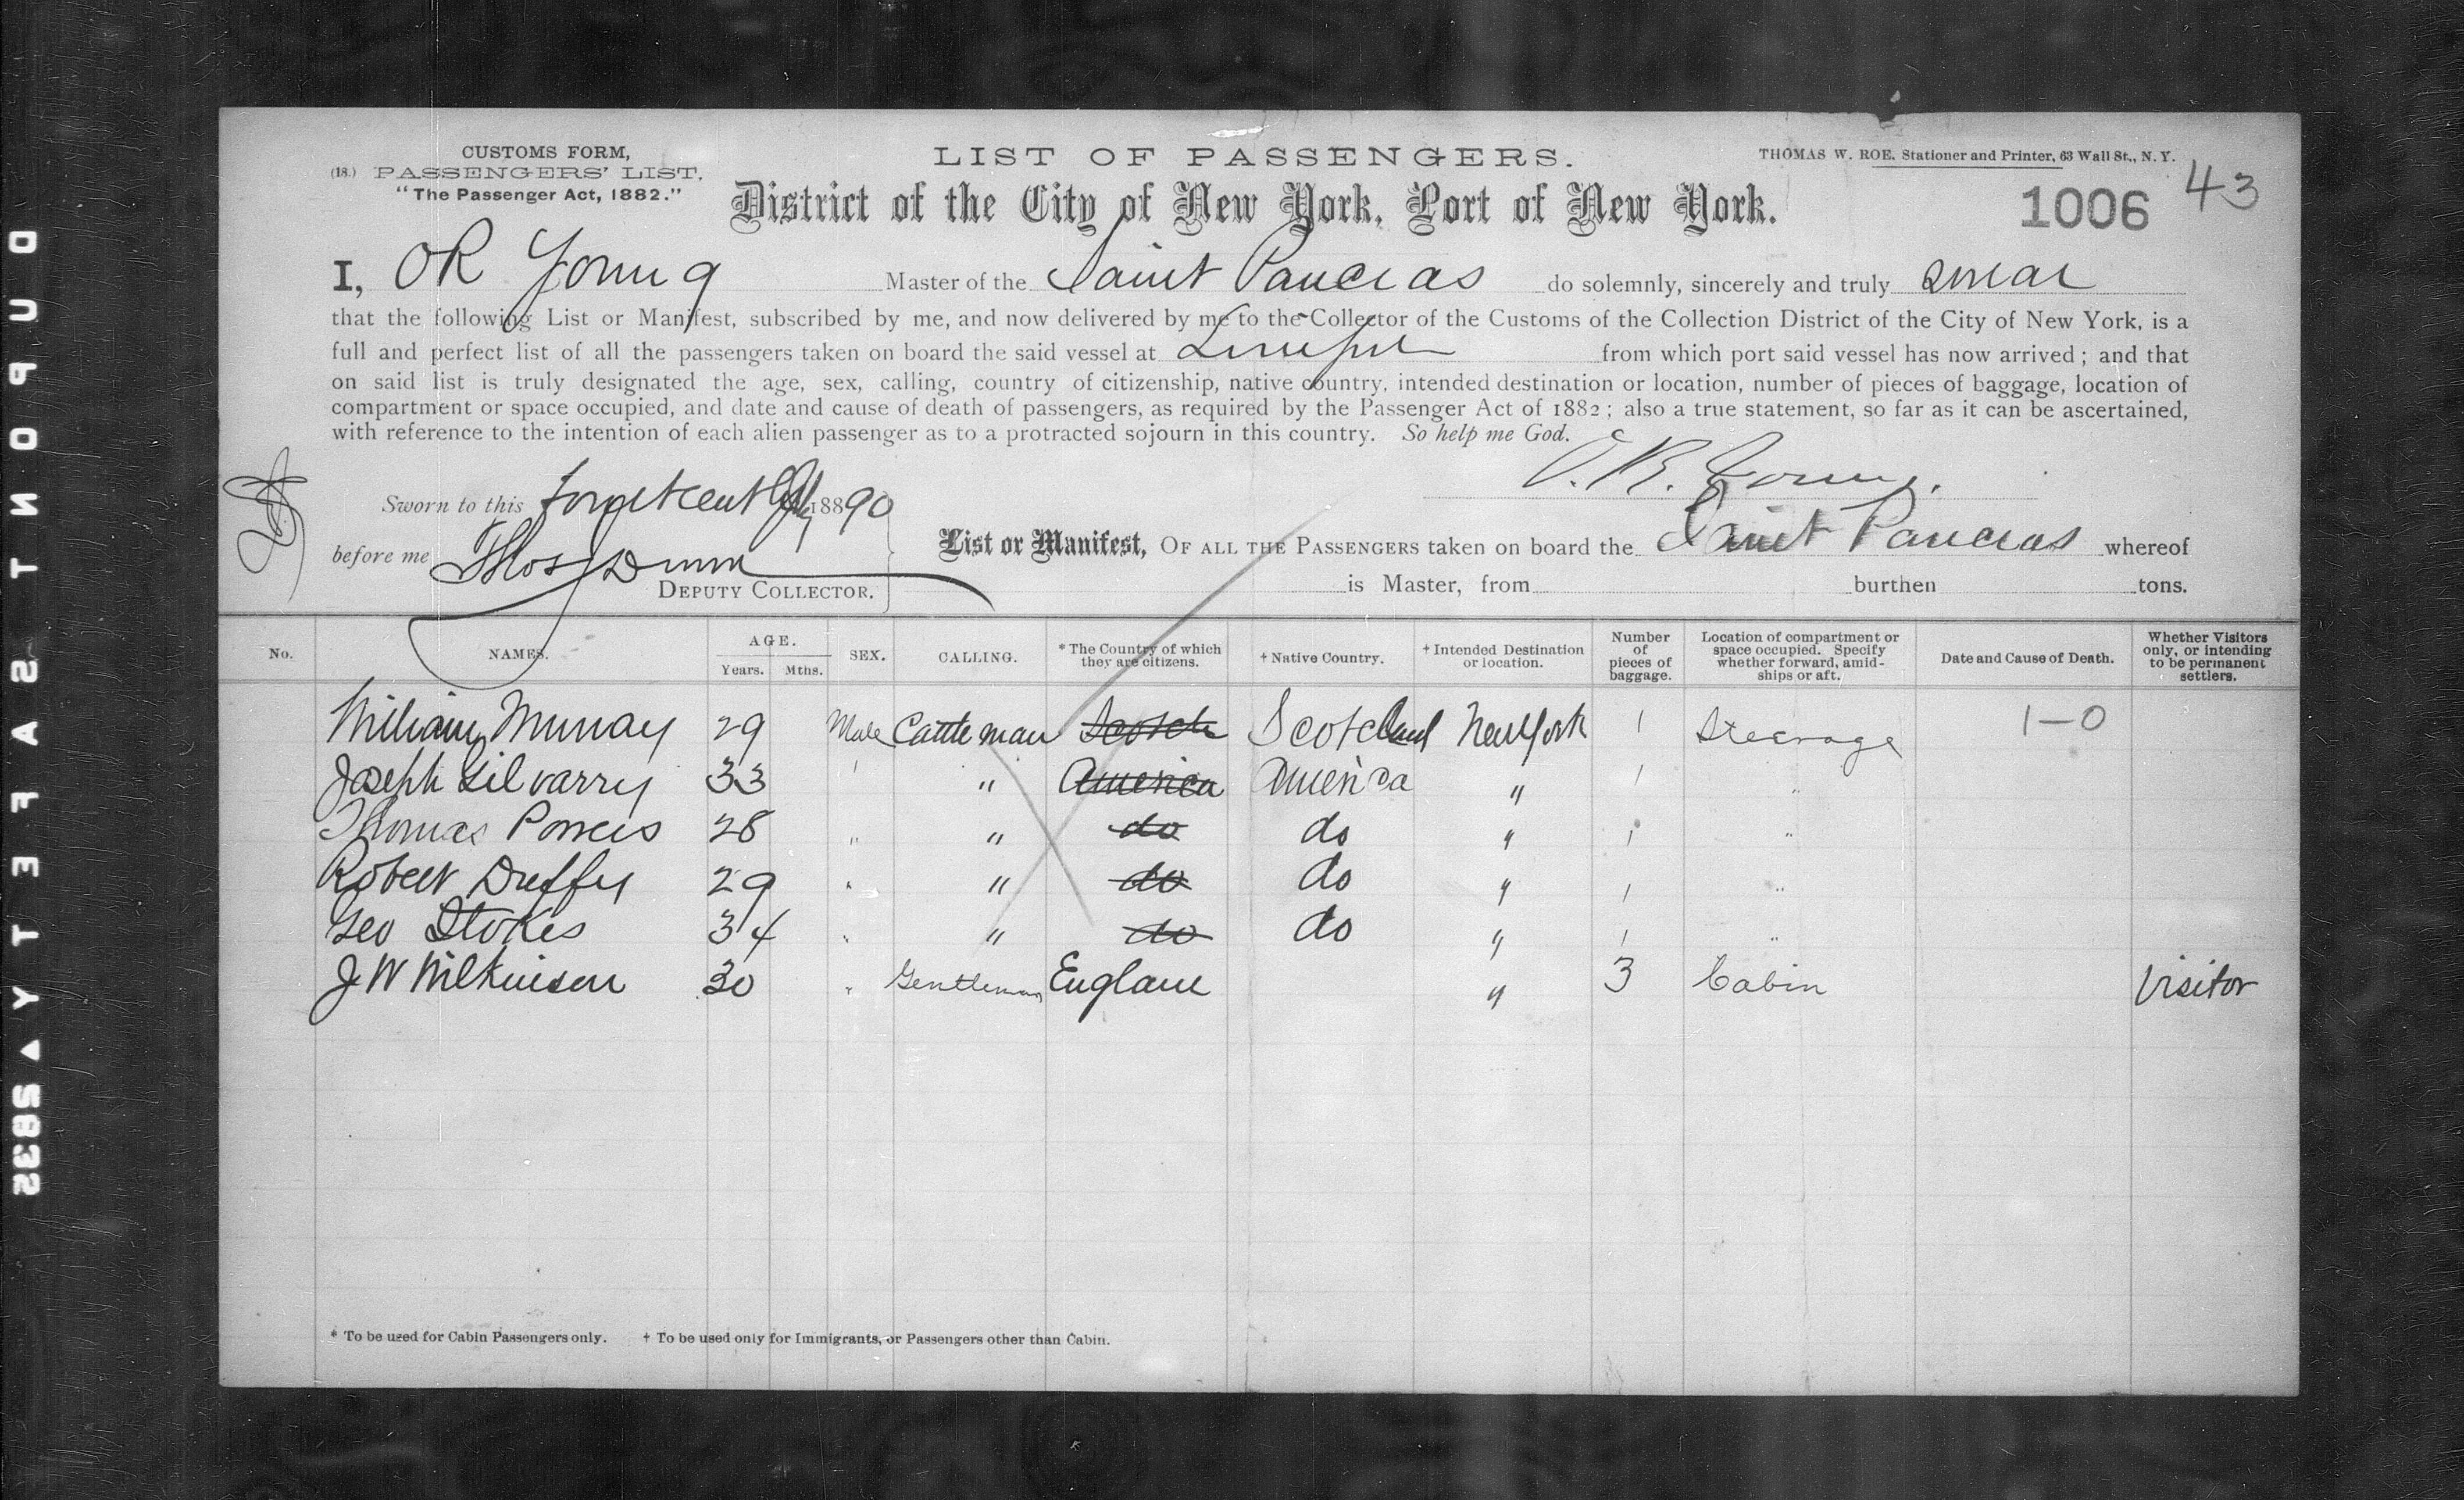 CUSTOMS FORM,
(18.) PASSENGERS' LIST,
"The Passenger Act, 1882."
LIST OF PASSENGERS.
THOMAS W. ROE, Stationer and Printer, 63 Wall St., N. Y.
District of the City of New York, Port of New York.
1006 43
I, OR Young Master of the Saint Pancras do solemnly, sincerely and truly swear
that the following List or Manifest, subscribed by me, and now delivered by me to the Collector of the Customs of the Collection District of the City of New York, is a
full and perfect list of all the passengers taken on board the said vessel at Liverpool from which port said vessel has now arrived; and that
on said list is truly designated the age, sex, calling, country of citizenship, native country, intended destination or location, number of pieces of baggage, location of
compartment or space occupied, and date and cause of death of passengers, as required by the Passenger Act of 1882; also a true statement, so far as it can be ascertained,
with reference to the intention of each alien passenger as to a protracted sojourn in this country. So help me God.
O. R. Young.
Sworn to this fourteenth July 18890
before me Thos J Dunn
DEPUTY COLLECTOR.
List or Manifest, OF ALL THE PASSENGERS taken on board the Saint Pancras whereof
is Master, from burthen tons.
No. NAMES. AGE. Years. Mths. SEX. CALLING. * The Country of which they are citizens. † Native Country. † Intended Destination or location. Number of pieces of baggage. Location of compartment or space occupied. Specify whether forward, amidships or aft. Date and Cause of Death. Whether Visitors only, or intending to be permanent settlers.
William Murray 29 Male Cattleman Scotch Scotland New York 1 Steerage 1-0
Joseph Gilvarry 33 " " America America " 1 "
Thomas Powers 28 " " do do " 1 "
Robert Duffy 29 " " do do " 1 "
Geo Stokes 34 " " do do " 1 "
J W Wilkinson 30 " Gentleman England " 3 Cabin Visitor
* To be used for Cabin Passengers only. † To be used only for Immigrants, or Passengers other than Cabin.
DUPONT SAFETY ▲ S83S